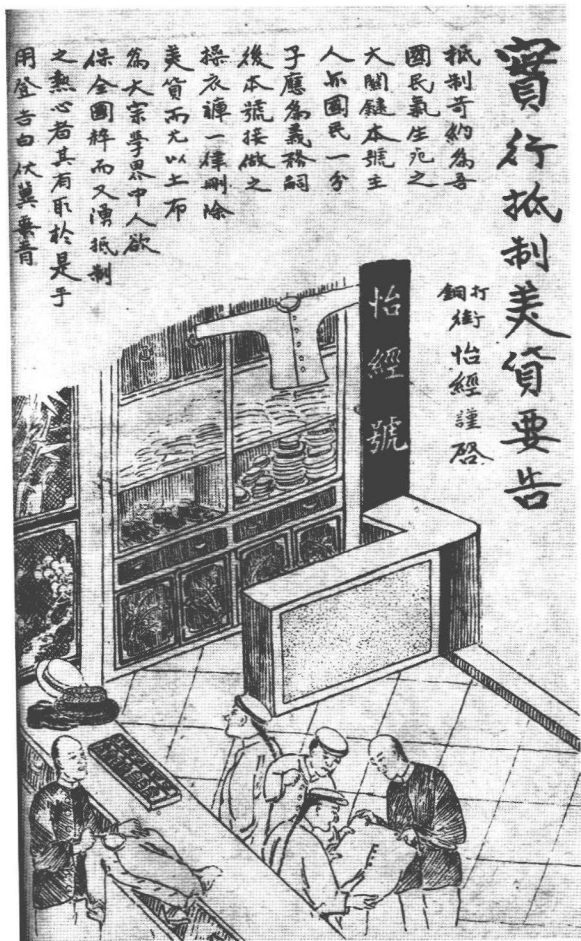 實行抵制美貨要告
打銅街怡經謹啓
抵制苛約為吾
國民氣生死之
大關鍵本號主
人亦國民一分
子應為義務嗣
後本號接做之
操衣褲一律刪除
美貨而尤以土布
為大宗學界中人欲
保全國粹而又湧抵制
之熱心者其有取於是乎
用登告白伏冀垂青
怡經號